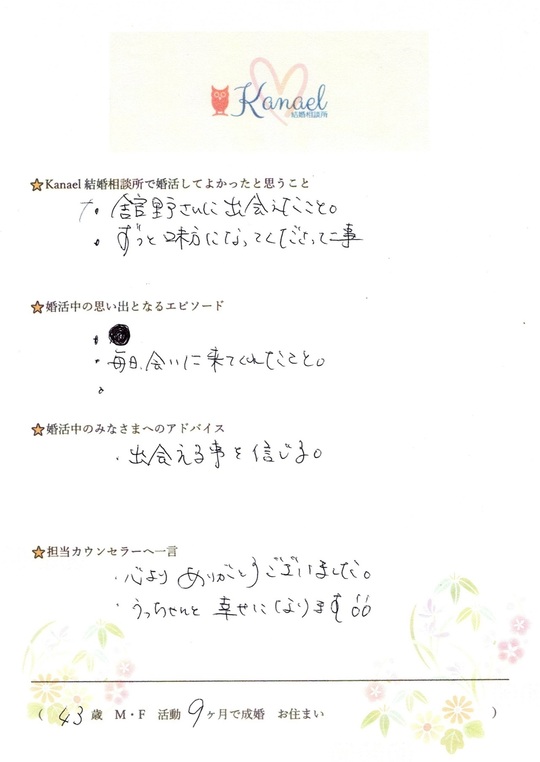 Kanael
結婚相談所
★Kanael 結婚相談所で婚活してよかったと思うこと
・舘野さんに出会えたこと。
・ずっと味方になってくださった事
★婚活中の思い出となるエピソード
・毎日、会いに来てくれたこと。
★婚活中のみなさまへのアドバイス
・出会える事を信じる。
★担当カウンセラーへ一言
・心よりありがとうございました。
・うっちゃんと幸せになります
( 43 歳 M・F 活動 9ヶ月で成婚 お住まい )